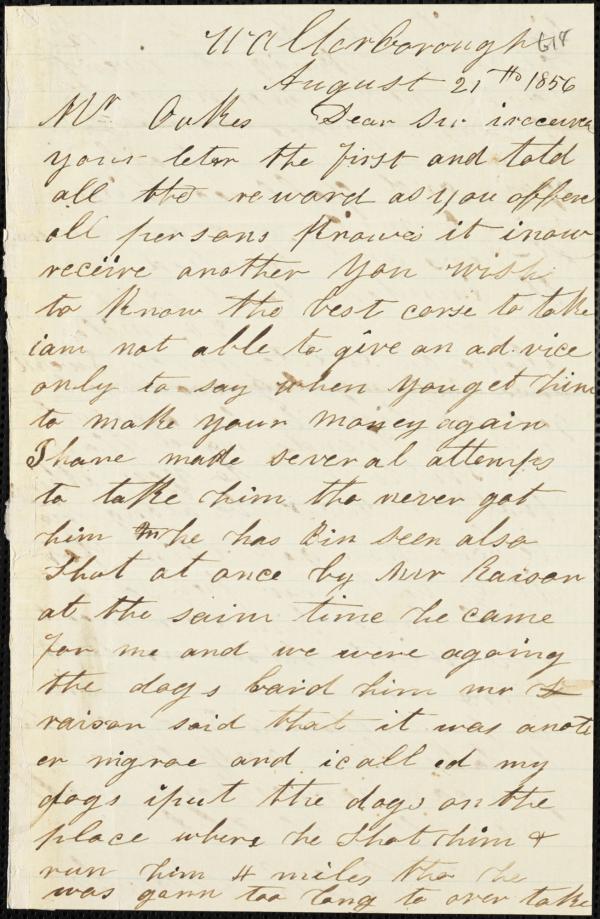 Walterborough 618
August 21th 1856
Mr Oakes Dear Sir i receive
your leter the first and told
all the reward as you offere
all persons Knows it i now
receive another you wish
to Know the best corse to take
i am not able to give an advice
only to say when you get him
to make your money again
I have made several attemps
to take him tho never got
him he has bin seen also
Shot at once by Mr Raison
at the saim time he came
for me and we were agoing
the dogs baid him mr
raison said that it was anoth
er nigroe and i call ed my
dogs i put the dogs on the
place where he Shot him &
run him 4 miles tho he
was gonn too long to over take